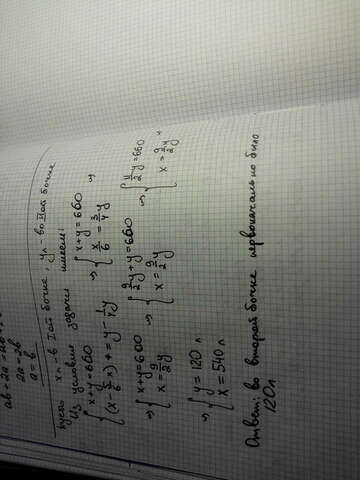 ab+2a-ab+
2a=2b
a=b
Пусть x л - в Iой бочке, y л - во IIой бочке
Из условия задачи имеем:
{ x+y=660
{ (x - 5/6 x) + = y - 1/4 y
⇒ { x+y=660
{ x/6 = 3/4 y ⇒
⇒ { x+y=660
{ x = 9/2 y
⇒ { 9/2 y + y = 660
{ x = 9/2 y
⇒ { 11/2 y = 660
{ x = 9/2 y
⇒ { y = 120 л
{ x = 540 л
Ответ: во второй бочке первоначально было
120л